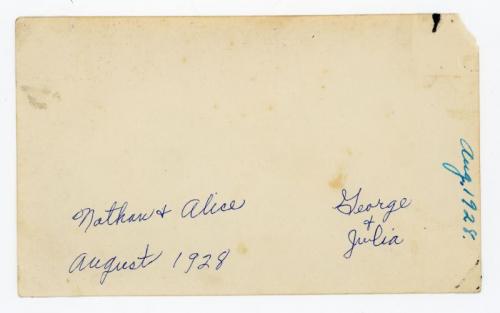 Nathan + Alice
August 1928
George
+
Julia
Aug, 1928.